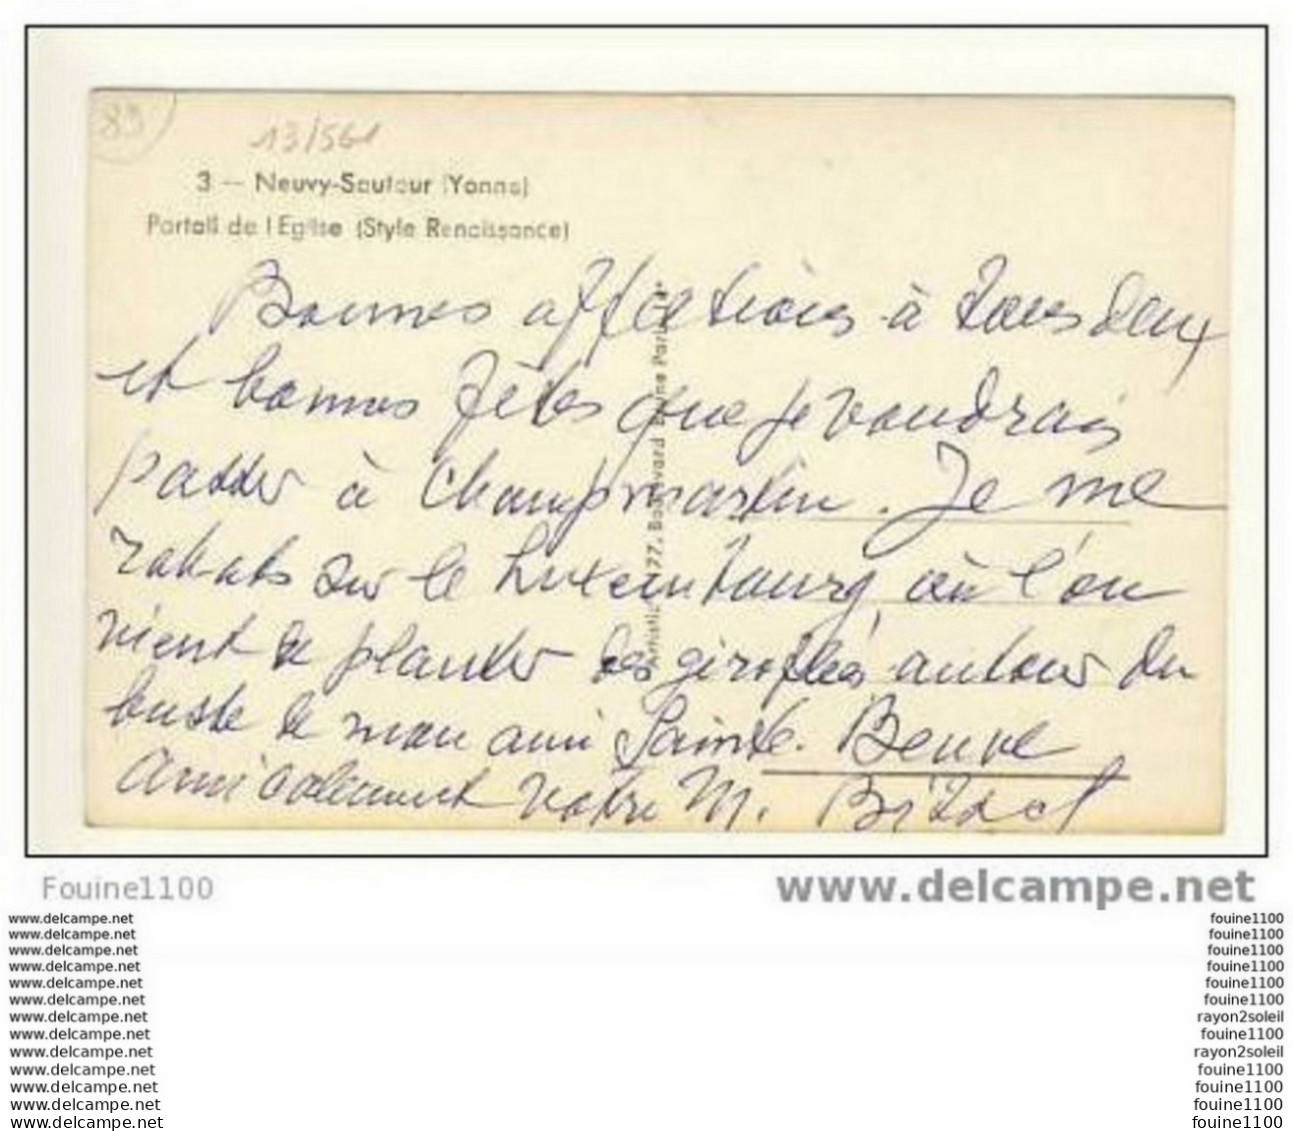 89
13/561
3 — Neuvy-Sautour (Yonne)
Portail de l'Eglise (Style Renaissance)
Bonnes affections à tous deux
et bonnes fêtes que je voudrais
passer à Champmartin. Je me
rabats sur le Luxembourg, où l'on
vient de planter des giroflées autour du
buste de mon ami Sainte-Beuve
Amicalement votre M.
77, Boulevard
Fouine1100
www.delcampe.net
www.delcampe.net
fouine1100
www.delcampe.net
fouine1100
www.delcampe.net
fouine1100
www.delcampe.net
fouine1100
www.delcampe.net
fouine1100
www.delcampe.net
fouine1100
www.delcampe.net
rayon2soleil
www.delcampe.net
fouine1100
www.delcampe.net
rayon2soleil
www.delcampe.net
fouine1100
www.delcampe.net
fouine1100
www.delcampe.net
fouine1100
www.delcampe.net
fouine1100